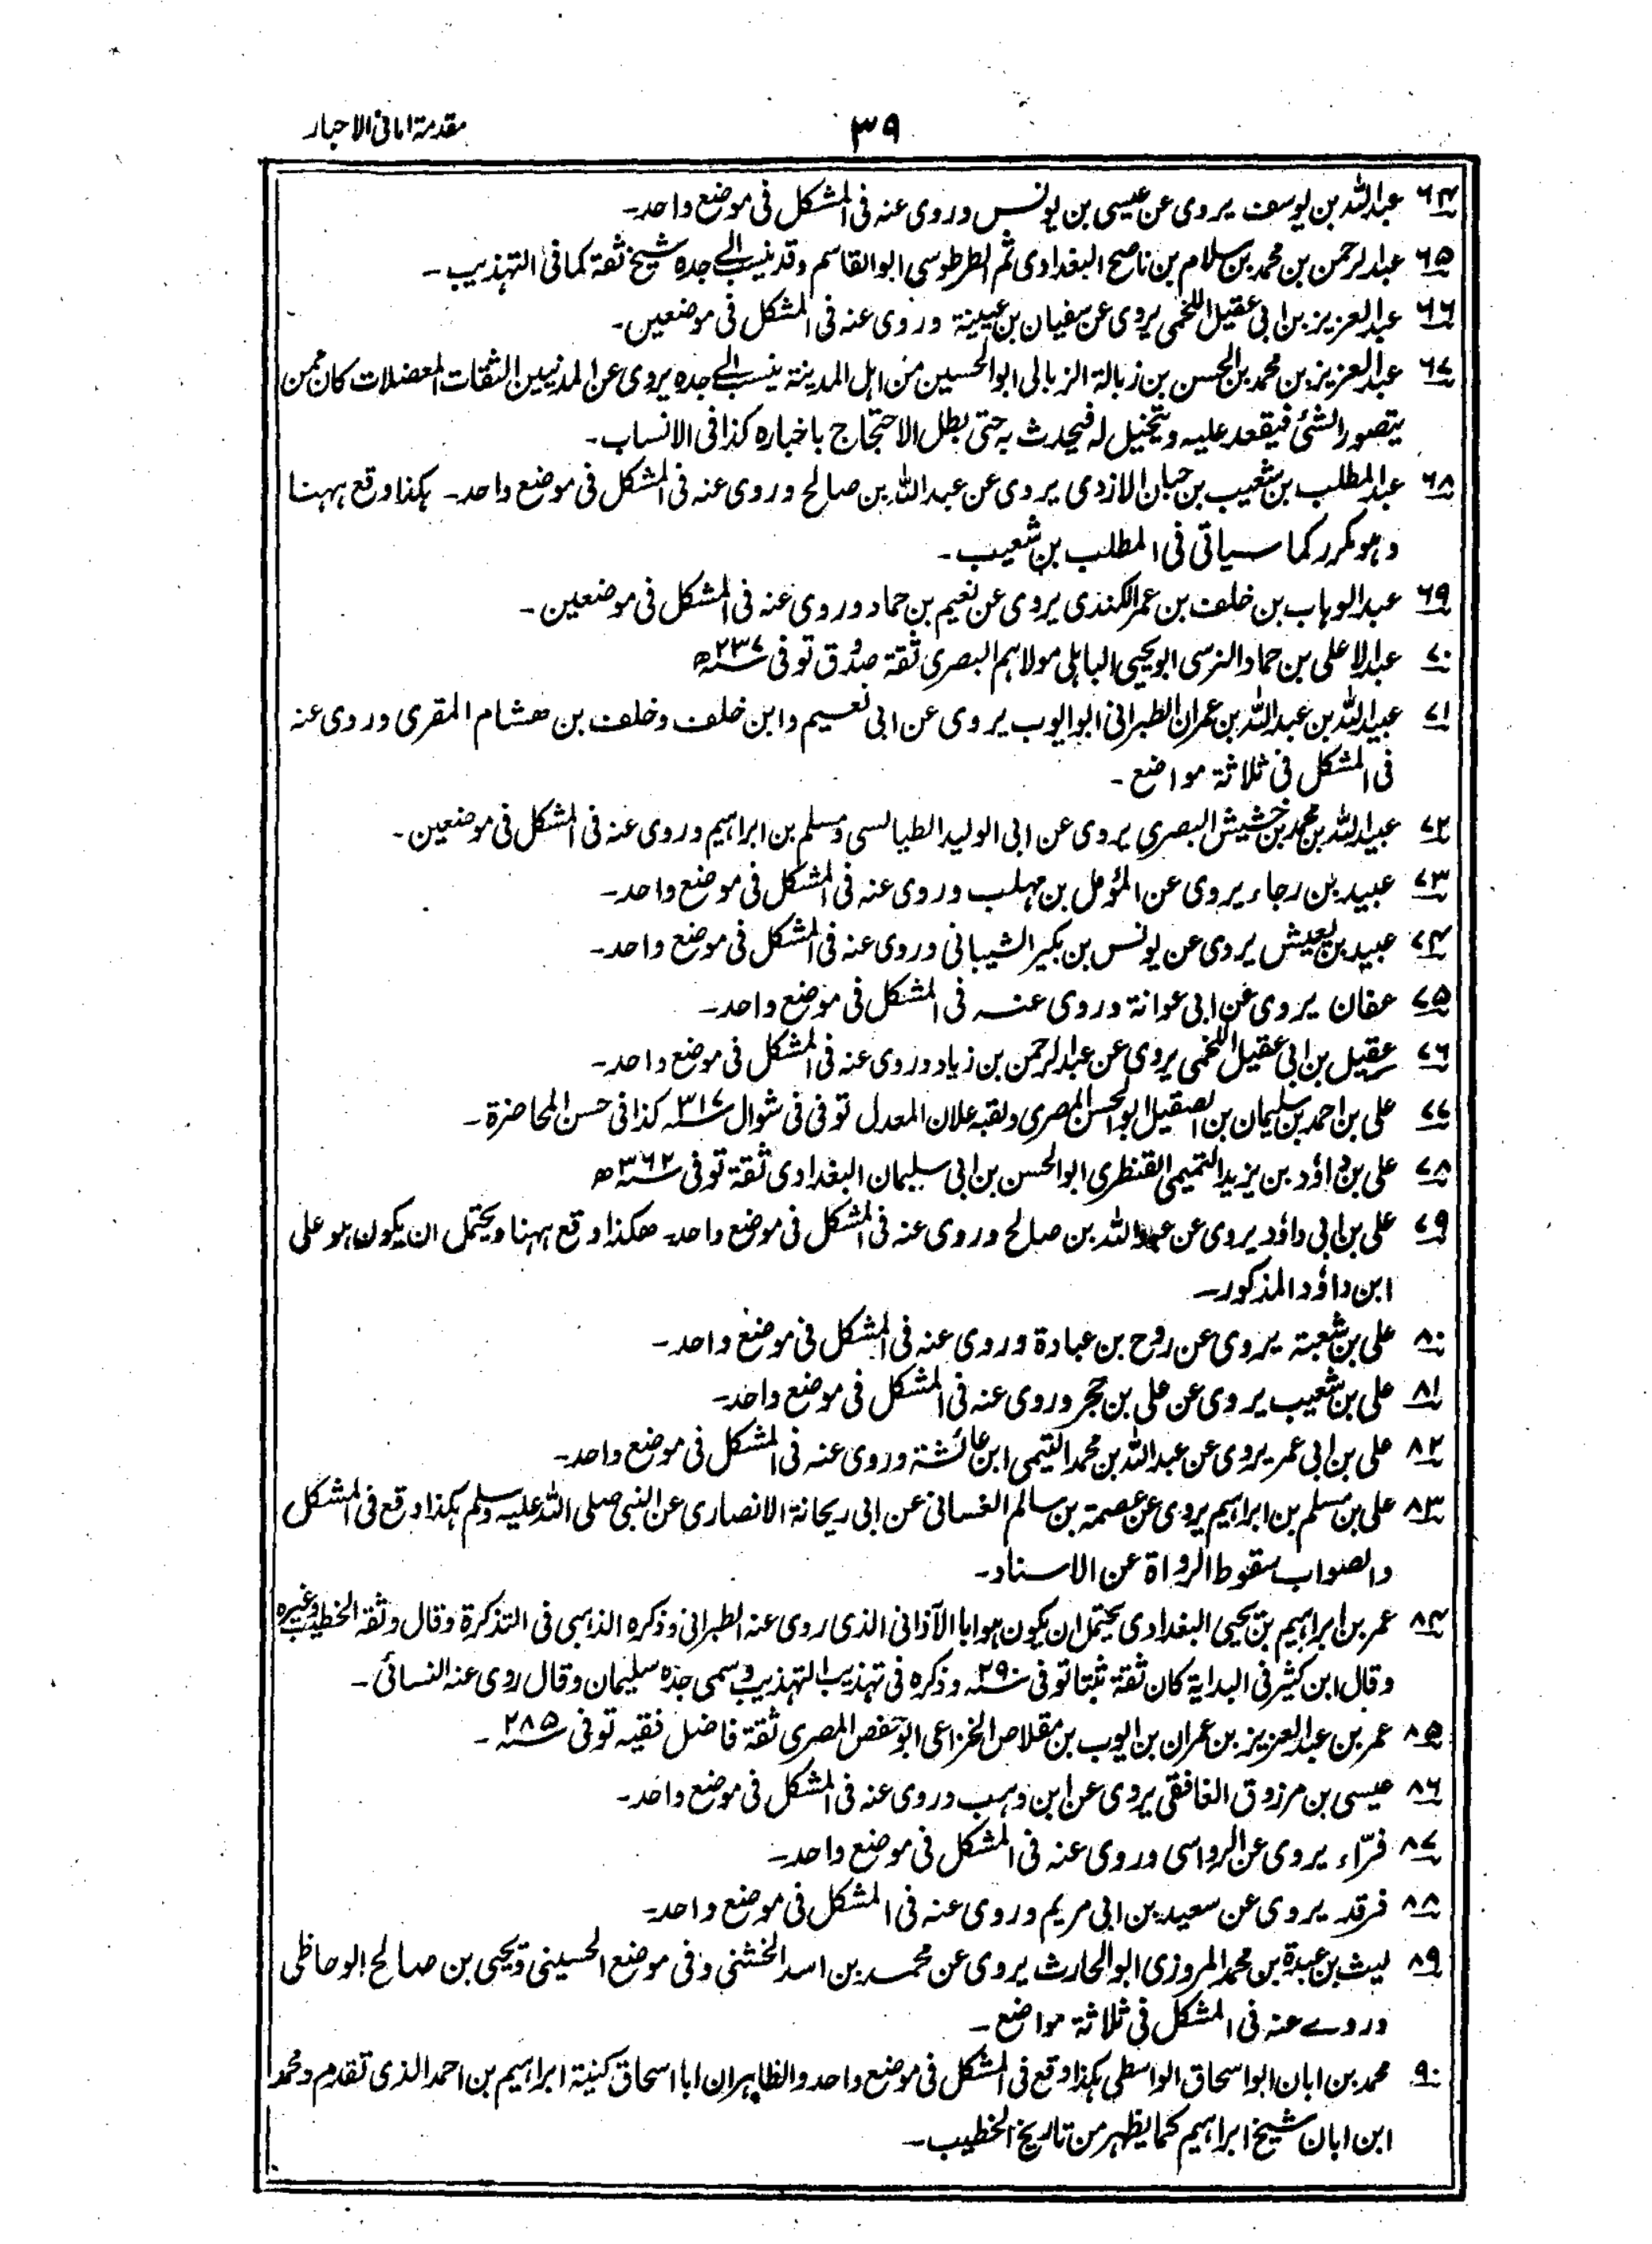 مقدمة امانی الاحبار
۳۹
۶۴ عبداللہ بن یوسف یروی عن عیسی بن یونس وروی عنہ فی المشکل فی موضع واحد۔
۶۵ عبدالرحمن بن محمد بن سلام بن ناصح البغدادی ثم الطرطوسی ابوالقاسم وقد ینسب الے جدہ شیخ ثقة کما فی التہذیب۔
۶۶ عبدالعزیز بن ابی عقیل اللخمی یروی عن سفیان بن عیینة وروی عنہ فی المشکل فی موضعین۔
۶۷ عبدالعزیز بن محمد بن الحسن بن زبالة الزبالی ابوالحسین من اہل المدینة ینسب الے جدہ یروی عن المدنیین الثقات المعضلات کان ممن
یتصور الشئ فیقعد علیہ ویتخیل لہ فیحدث بہ حتی بطل الاحتجاج باخبارہ کذا فی الانساب۔
۶۸ عبدالمطلب بن شعیب بن حبان الازدی یروی عن عبداللہ بن صالح وروی عنہ فی المشکل فی موضع واحد۔ ہکذا وقع ہہنا
وہو مکرر کما سیاتی فی المطلب بن شعیب۔
۶۹ عبدالوہاب بن خلف بن عمر الکندی یروی عن نعیم بن حماد وروی عنہ فی المشکل فی موضعین۔
۷۰ عبدالاعلی بن حماد النرسی ابویحیی الباہلی مولاہم البصری ثقة صدوق توفی ۲۳۷ھ
۷۱ عبیداللہ بن عبداللہ بن عمران الطبرانی ابوایوب یروی عن ابی نعیم وابن خلف وخلف بن ھشام المقری وروی عنہ
فی المشکل فی ثلاثة مواضع۔
۷۲ عبیداللہ بن محمد بن خشیش البصری یروی عن ابی الولید الطیالسی ومسلم بن ابراہیم وروی عنہ فی المشکل فی موضعین۔
۷۳ عبید بن رجاء یروی عن المؤمل بن مہلب وروی عنہ فی المشکل فی موضع واحد۔
۷۴ عبید بن یعیش یروی عن یونس بن بکیر الشیبانی وروی عنہ فی المشکل فی موضع واحد۔
۷۵ عفان یروی عن ابی عوانة وروی عنہ فی المشکل فی موضع واحد۔
۷۶ عقیل بن ابی عقیل اللخمی یروی عن عبدالرحمن بن زیاد وروی عنہ فی المشکل فی موضع واحد۔
۷۷ علی بن احمد بن سلیمان بن الصقیل ابوالحسن المصری ولقبہ علان المعدل توفی فی شوال ۳۱۷ کذا فی حسن المحاضرة۔
۷۸ علی بن داؤد بن یزید التمیمی القنطری ابوالحسن بن ابی سلیمان البغدادی ثقة توفی ۳۶۲ھ
۷۹ علی بن ابی داؤد یروی عن عبداللہ بن صالح وروی عنہ فی المشکل فی موضع واحد۔ ھکذا وقع ہہنا ویحتمل ان یکون ہو علی
ابن داؤد المذکور۔
۸۰ علی بن شعبة یروی عن روح بن عبادة وروی عنہ فی المشکل فی موضع واحد۔
۸۱ علی بن شعیب یروی عن علی بن حجر وروی عنہ فی المشکل فی موضع واحد۔
۸۲ علی بن ابی عمر یروی عن عبداللہ بن محمد التیمی ابن عائشة وروی عنہ فی المشکل فی موضع واحد۔
۸۳ علی بن مسلم بن ابراہیم یروی عن عصمة بن سالم الغسانی عن ابی ریحانة الانصاری عن النبی صلی اللہ علیہ وسلم ہکذا وقع فی المشکل
والصواب سقوط الرواة عن الاسناد۔
۸۴ عمر بن ابراہیم بن یحیی البغدادی یحتمل ان یکون ہو ابا الآذانی الذی روی عنہ الطبرانی وذکرہ الذہبی فی التذکرة وقال وثقہ الخطیب وغیرہ
وقال ابن کثیر فی البدایة کان ثقة ثبتا توفی ۲۹۰ وذکرہ فی تہذیب التہذیب وسمی جدہ سلیمان وقال روی عنہ النسائی۔
۸۵ عمر بن عبدالعزیز بن عمران بن ایوب بن مقلاص الخزاعی ابوحفص المصری ثقة فاضل فقیہ توفی ۲۸۵۔
۸۶ عیسی بن مرزوق الغافقی یروی عن ابن وہب وروی عنہ فی المشکل فی موضع واحد۔
۸۷ فرّاء یروی عن الرواسی وروی عنہ فی المشکل فی موضع واحد۔
۸۸ فرقد یروی عن سعید بن ابی مریم وروی عنہ فی المشکل فی موضع واحد۔
۸۹ لیث بن عبدة بن محمد المروزی ابوالحارث یروی عن محمد بن اسد الخشنی وفی موضع الحسینی ویحیی بن صالح الوحاظی
وروے عنہ فی المشکل فی ثلاثة مواضع۔
۹۰ محمد بن ابان ابواسحاق الواسطی ہکذا وقع فی المشکل فی موضع واحد والظاہر ان ابا اسحاق کنیة ابراہیم بن احمد الذی تقدم ومحمد
ابن ابان شیخ ابراہیم کما یظہر من تاریخ الخطیب۔